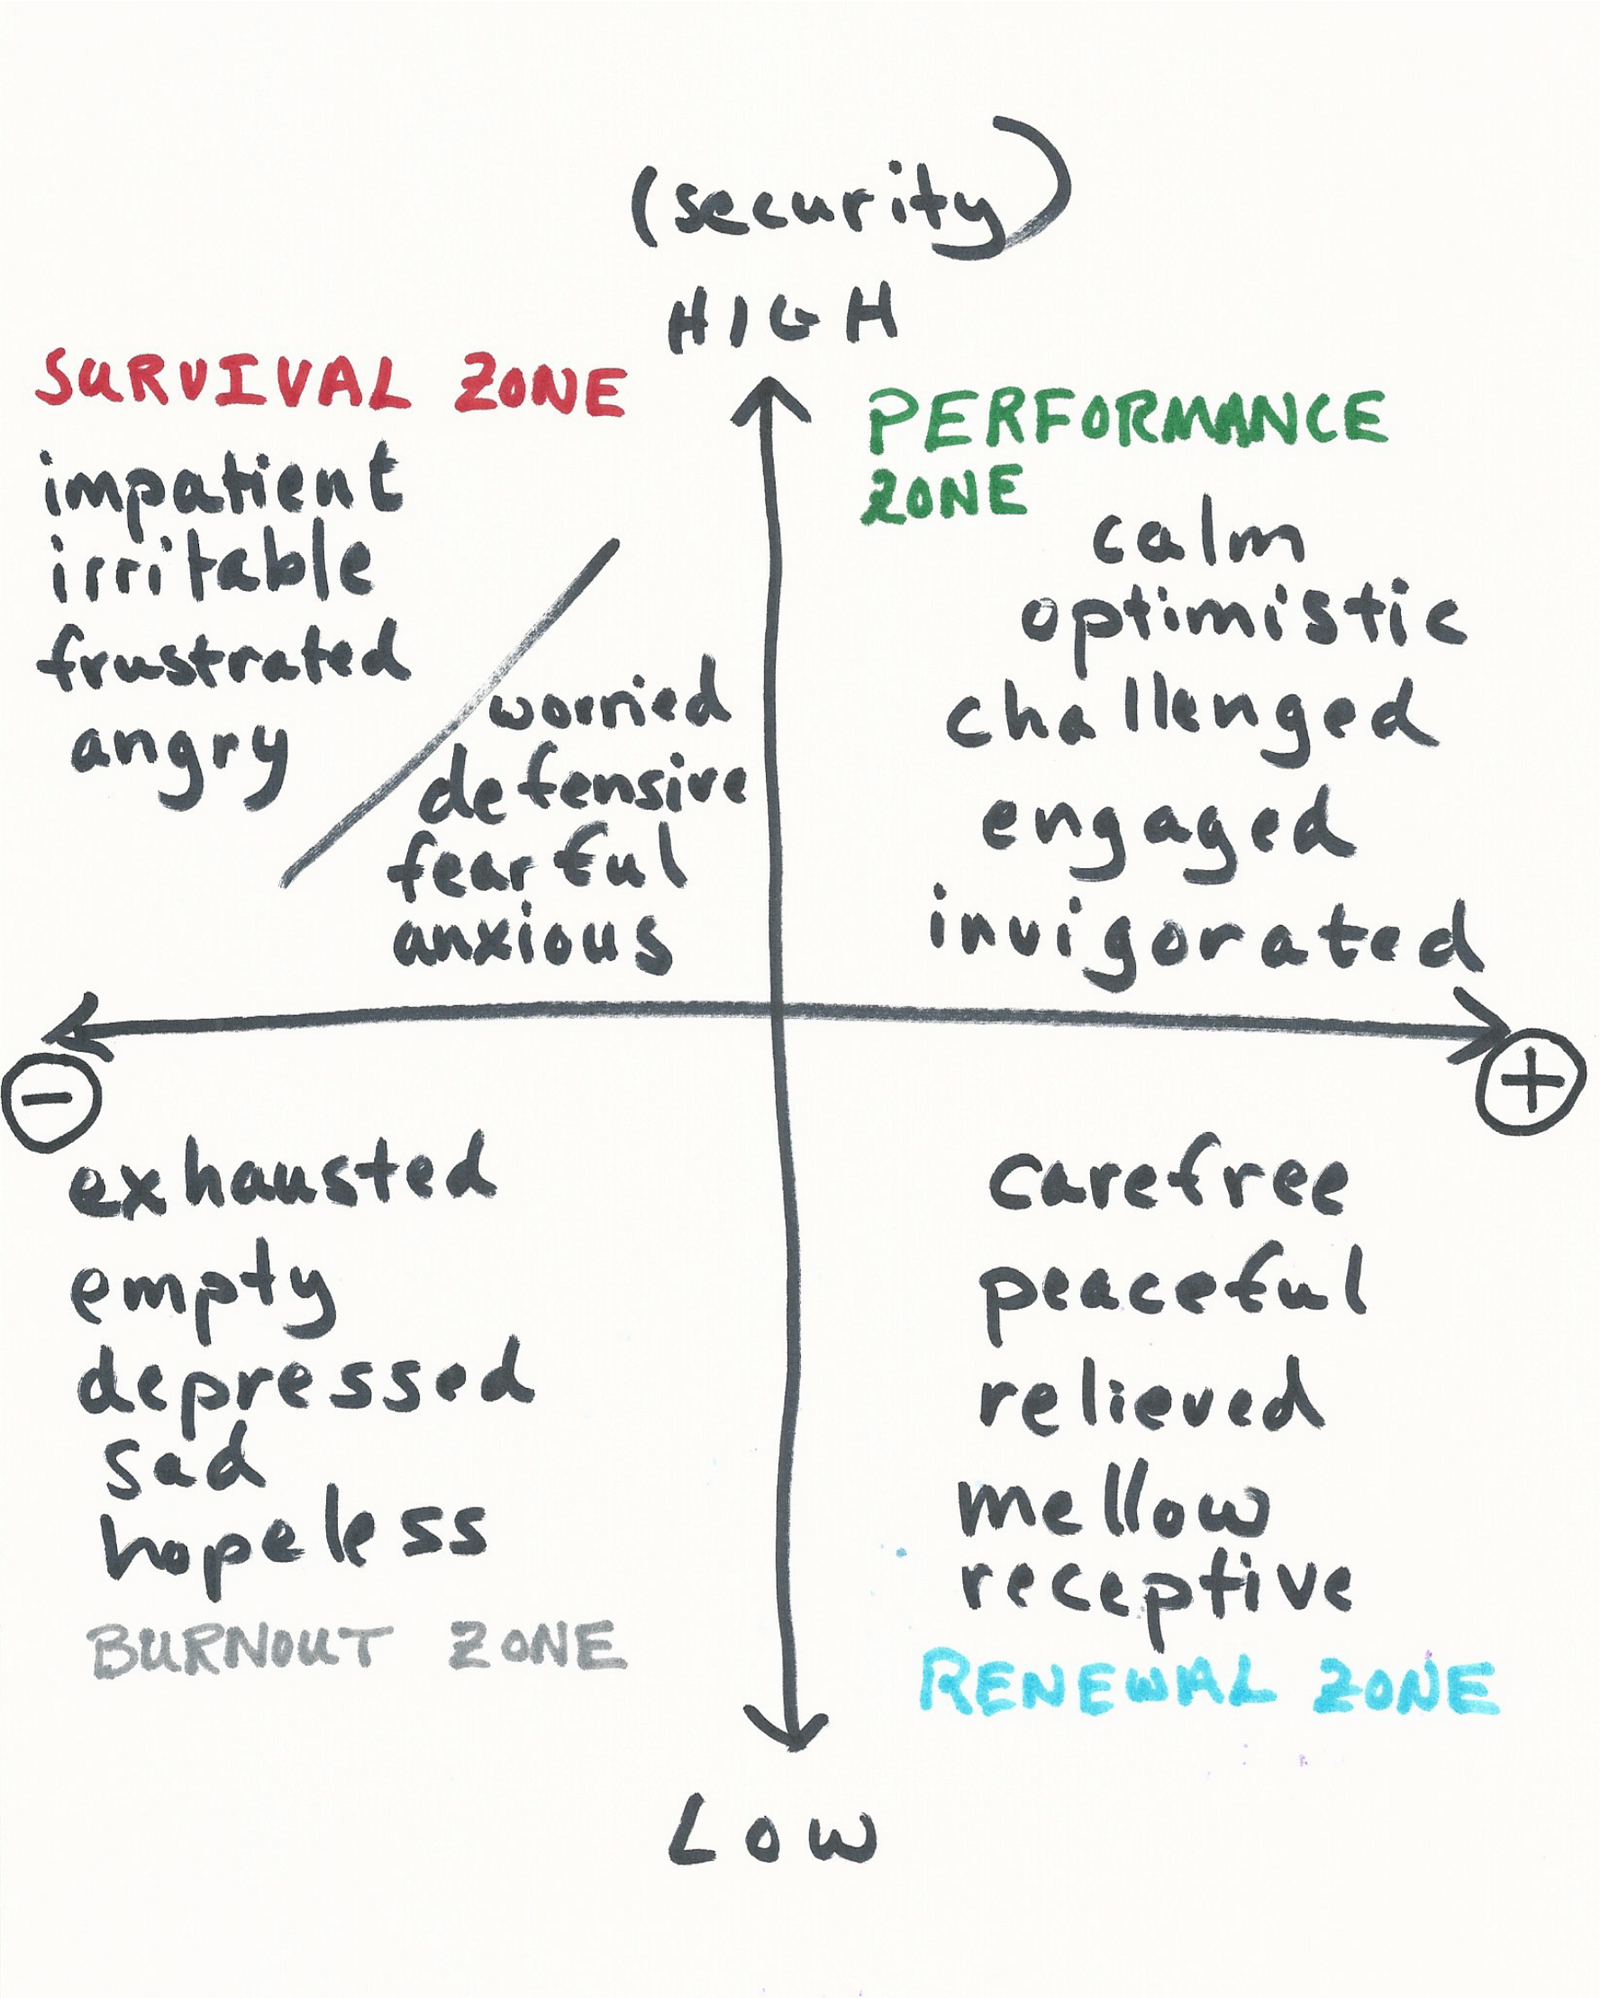 (security)
HIGH
SURVIVAL ZONE
impatient
irritable
frustrated
angry
worried
defensive
fearful
anxious
PERFORMANCE
ZONE
calm
optimistic
challenged
engaged
invigorated
-
+
exhausted
empty
depressed
sad
hopeless
BURNOUT ZONE
carefree
peaceful
relieved
mellow
receptive
RENEWAL ZONE
LOW